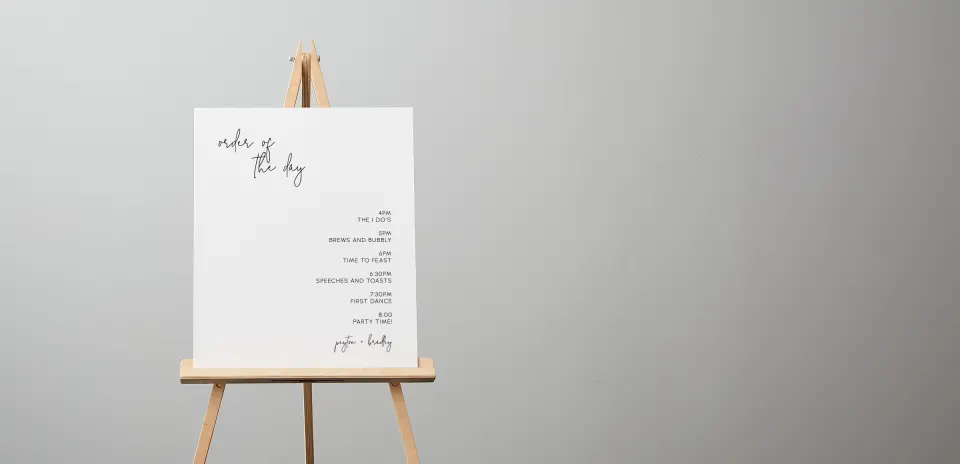 order of
the day
4PM
THE I DO'S
5PM
BREWS AND BUBBLY
6PM
TIME TO FEAST
6:30PM
SPEECHES AND TOASTS
7:30PM
FIRST DANCE
8:00
PARTY TIME!
peyton + bradly